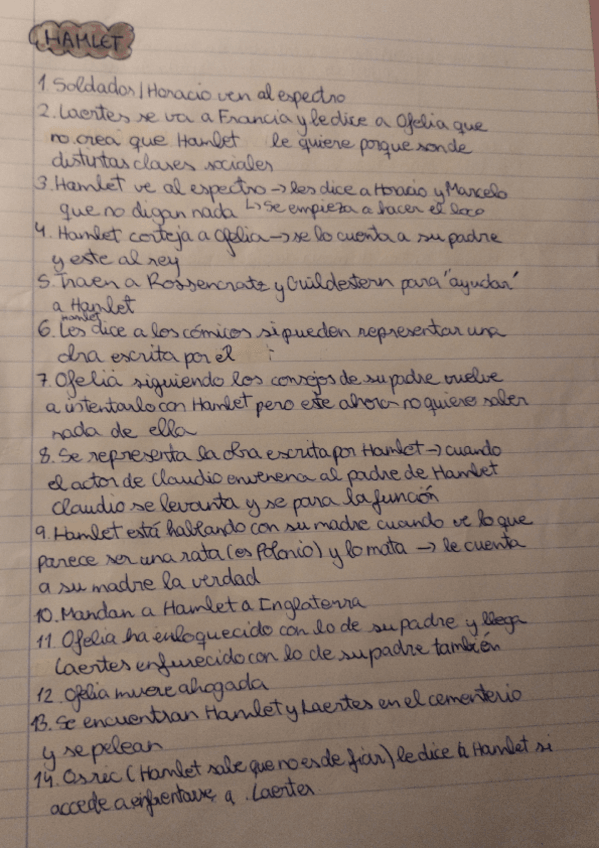 HAMLET
1. Soldados/Horacio ven al espectro
2. Laertes se va a Francia y le dice a Ofelia que
no crea que Hamlet le quiere porque son de
distintas clases sociales
3. Hamlet ve al espectro → les dice a Horacio y Marcelo
que no digan nada ↳ Se empieza a hacer el loco
4. Hamlet corteja a Ofelia → se lo cuenta a su padre
y este al rey
5. Traen a Rossencratz y Guildestern para "ayudar"
a Hamlet
Hamlet
6. Les dice a los cómicos si pueden representar una
obra escrita por él
7. Ofelia siguiendo los consejos de su padre vuelve
a intentarlo con Hamlet pero este ahora no quiere saber
nada de ella
8. Se representa la obra escrita por Hamlet → cuando
el actor de Claudio envenena al padre de Hamlet
Claudio se levanta y se para la función
9. Hamlet está hablando con su madre cuando ve lo que
parece ser una rata (es Polonio) y lo mata → le cuenta
a su madre la verdad
10. Mandan a Hamlet a Inglaterra
11. Ofelia ha enloquecido con lo de su padre y llega
Laertes enfurecido con lo de su padre también
12. Ofelia muere ahogada
13. Se encuentran Hamlet y Laertes en el cementerio
y se pelean
14. Osric (Hamlet sabe que no es de fiar) le dice a Hamlet si
accede a enfrentarse a Laertes